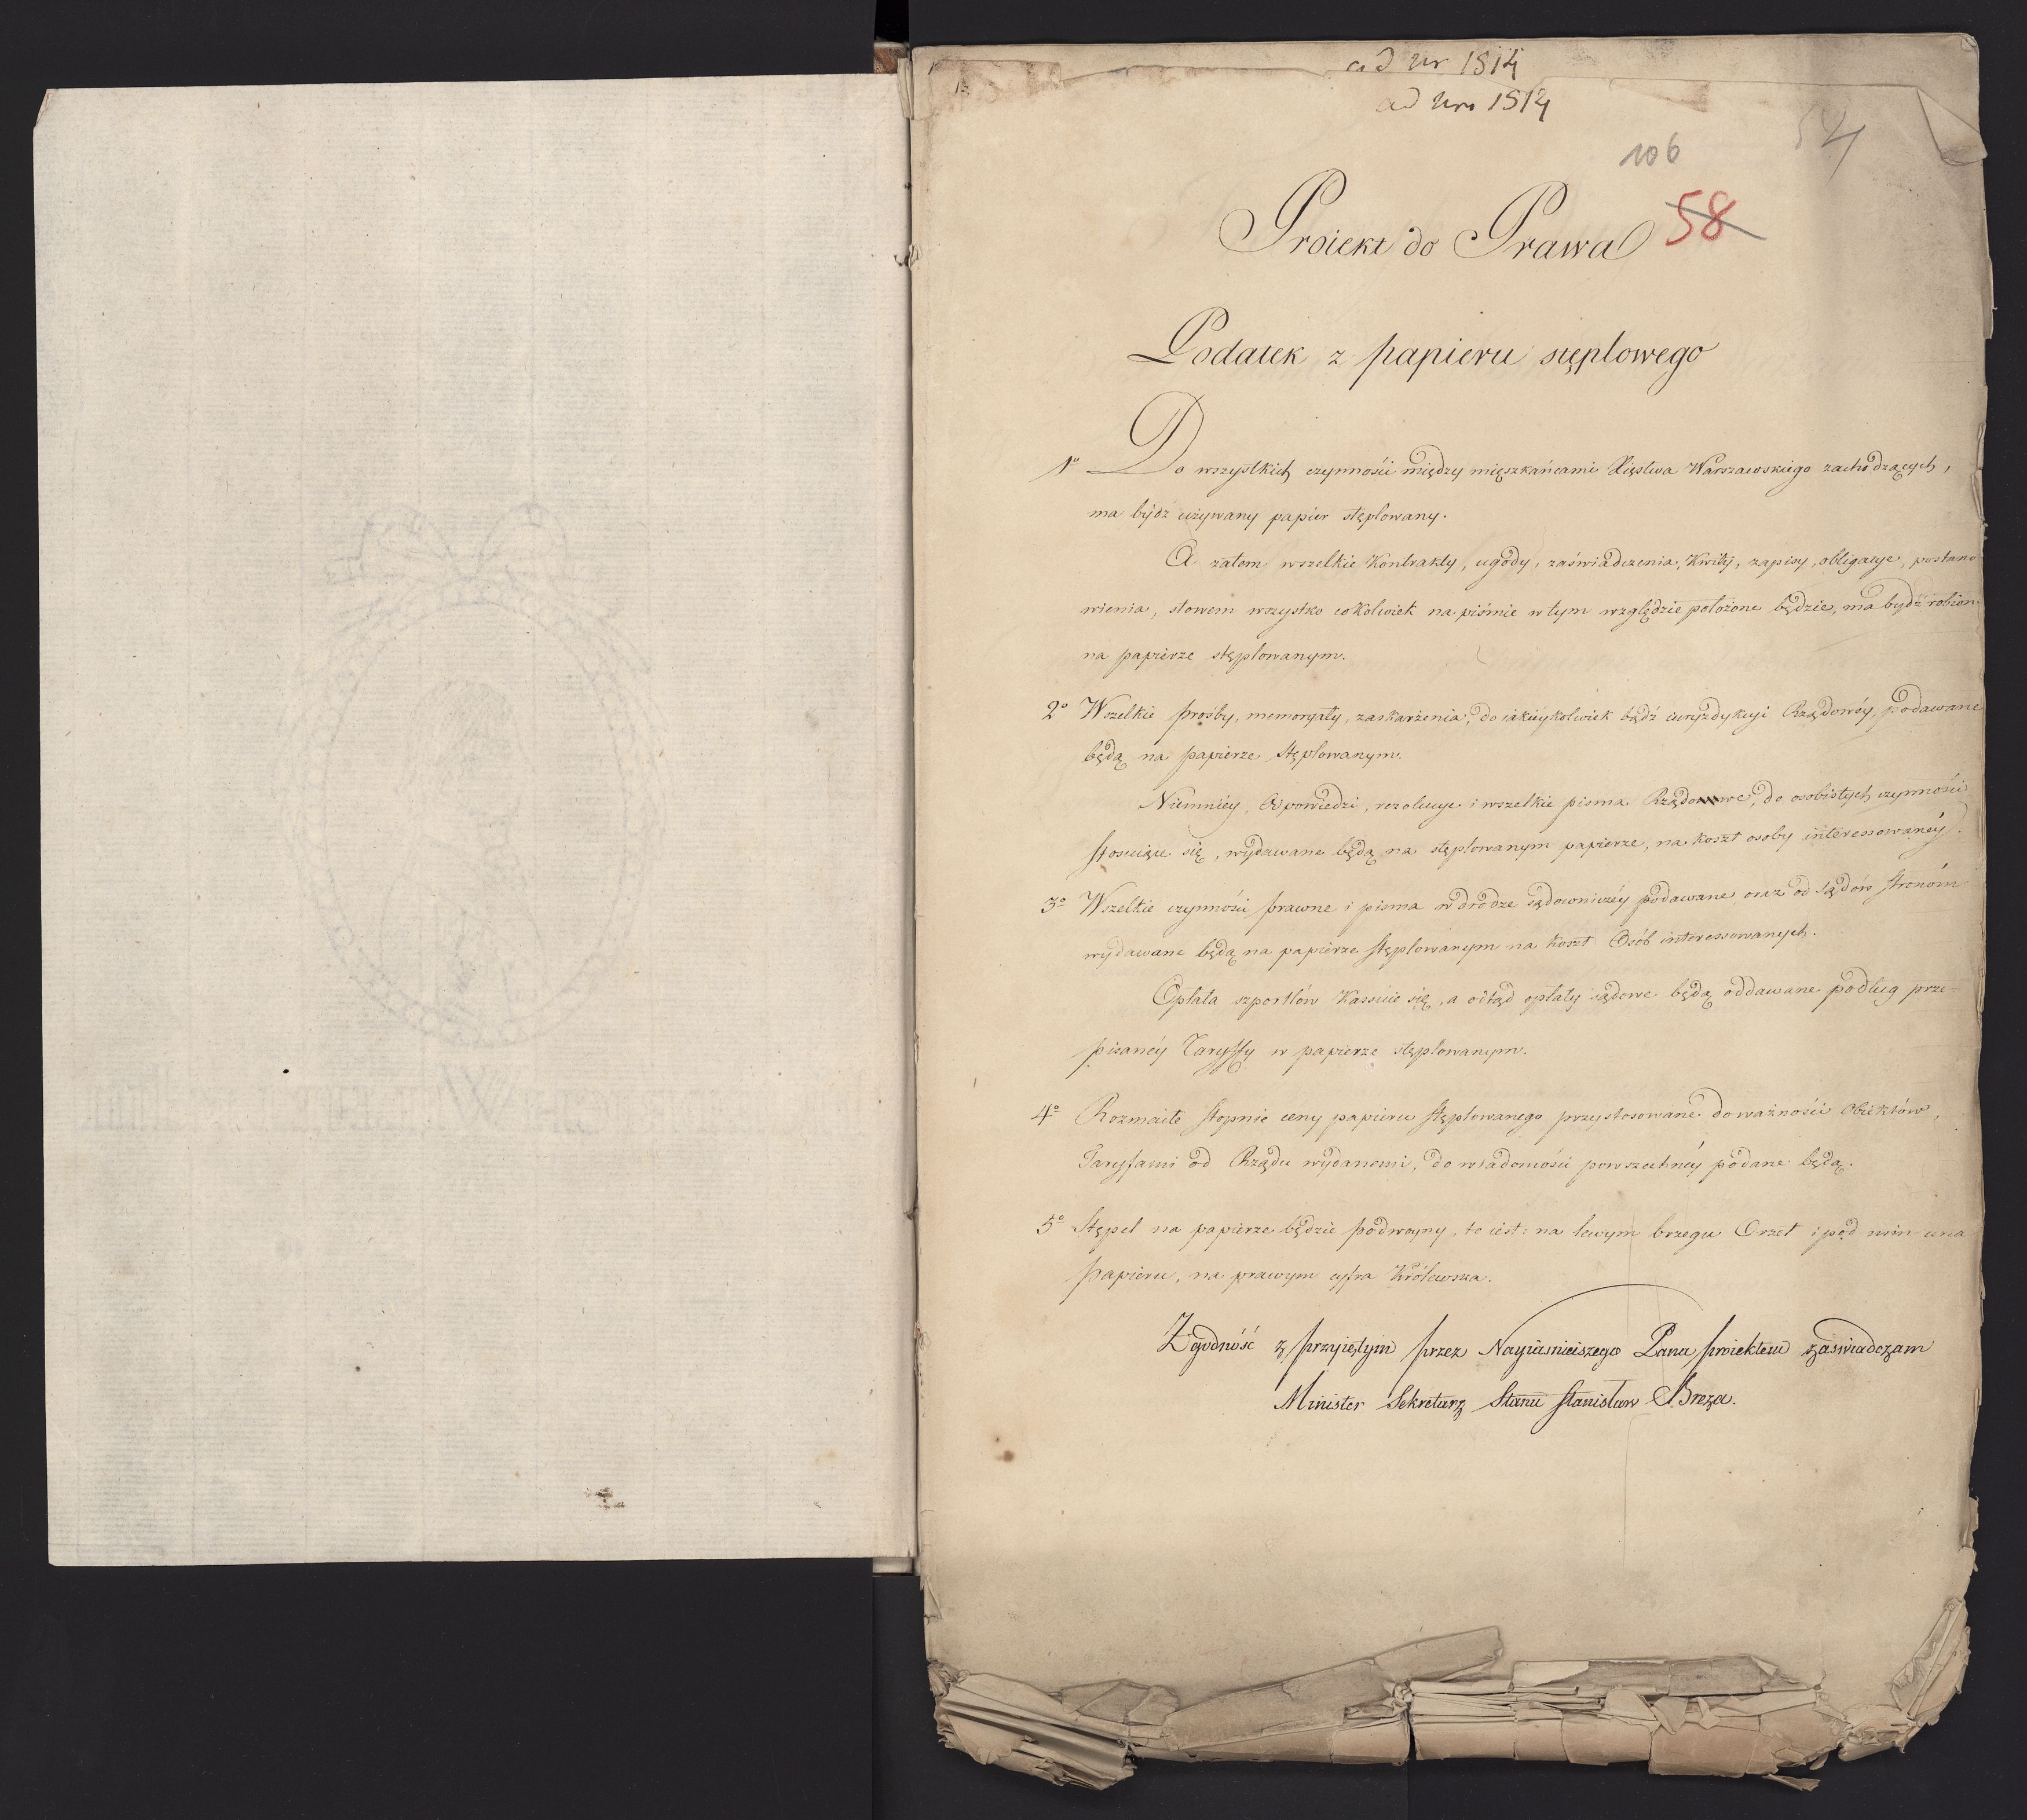 ad Nr 1514
ad Nro 1514
106
54
58
Proiekt do Prawa
Podatek z papieru stęplowego
1º Do wszystkich czynności między mięszkańcami Xięstwa Warszawskiego zachodzących,
ma bydź używany papier stęplowany.
A zatem wszelkie Kontrakty, ugody, zaświadczenia, Kwity, zapisy, obligacye, postano
wienia, słowem wszystko cokolwiek na piśmie w tym względzie położone będzie, ma bydź robion
na papierze stęplowanym.
2º Wszelkie prośby, memoryały, zaskarżenia, do iakieykolwiek bądź iuryzdykcyi Rządowéy, podawane
będą na papierze stęplowanym.
Niemniéy, Odpowiedzi, rezolucye i wszelkie pisma Rządowe, do osobistych czynności
stosuiące się, wydawane będą na stęplowanym papierze, na koszt osoby interessowanéy.
3º Wszelkie czynności prawne i pisma w drodze sądowniczéy podawane oraz od sądów stronóm
wydawane będą na papierze stęplowanym na koszt Osób interessowanych.
Opłata szportlów kassuie się, a odtąd opłaty sądowe będą oddawane podług prze-
pisanéy Taryffy w papierze stęplowanym.
4º Rozmaite stopnie ceny papieru stęplowanego przystosowane do ważności Obiektów,
Taryfami od Rządu wydanemi, do wiadomości powszechnéy podane będą.
5º Stępel na papierze będzie podwoyny, to iest: na lewym brzegu Orzeł i pod nim cena
papieru, na prawym cyfra Królewska.
Zgodność z przyiętym przez Nayiaśnieiszego Pana proiektem zaswiadczam
Minister Sekretarz Stanu Stanisław Breza.